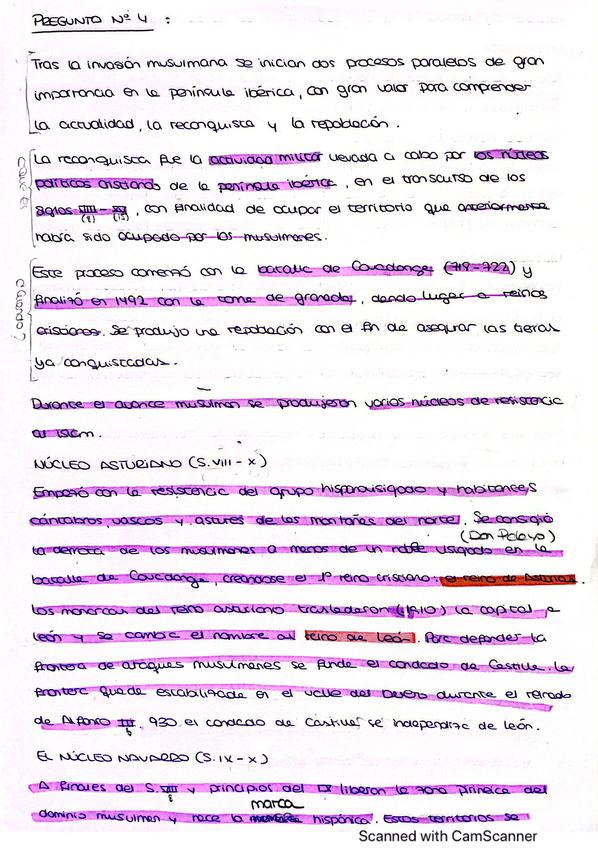 PREGUNTA Nº 4 :
Tras la invasión musulmana se inician dos procesos paralelos de gran
importancia en la península ibérica, con gran valor para comprender
la actualidad, la reconquista y la repoblación.
¿Qué es?
La reconquista fue la actividad militar llevada a cabo por los núcleos
políticos cristianos de la península ibérica, en el transcurso de los
siglos VIII - XV, con finalidad de ocupar el territorio que anteriormente
(8) (15)
había sido ocupado por los musulmanes.
¿Cuándo?
Este proceso comenzó con la batalla de Covadonga (719-722) y
finalizó en 1492 con la toma de granada, dando lugar a reinos
cristianos. Se produjo una repoblación con el fin de asegurar las tierras
ya conquistadas.
Durante el avance musulman se produjeron varios núcleos de resistencia
al islam.
NÚCLEO ASTURIANO (S. VIII - X)
Empezó con la resistencia del grupo hispanovisigodo y habitantes
cántabros, vascos y astures de las montañas del norte. Se consiguió
(Don Pelayo)
la derrota de los musulmanes a manos de un noble visigodo en la
batalla de Covadonga, creándose el 1º reino cristiano: el reino de Asturias.
Los monarcas del reino asturiano trasladaron (910) la capital a
león y se cambia el nombre al reino de león. Para defender la
frontera de ataques musulmanes se funda el condado de Castilla. La
frontera queda estabilizada en el valle del Duero durante el reinado
de Alfonso III. 930 el condado de castilla se independiza de león.
EL NÚCLEO NAVARRO (S. IX - X)
A finales del S. VIII y principios del IX liberan la zona pirenaica del
8
marca
dominio musulman y nace la hispánica. Estos territorios se
Scanned with CamScanner